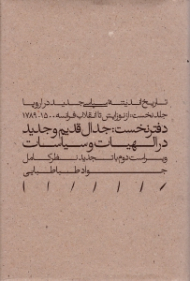 تاریخ اندیشهٔ سیاسی جدید در اروپا
جلد نخست: از نوزایش تا انقلاب فرانسه ۱۵۰۰–۱۷۸۹
دفتر نخست: جدال قدیم و جدید
در الهیات و سیاسات
ویراست دوم با تجدید نظر کامل
جواد طباطبایی